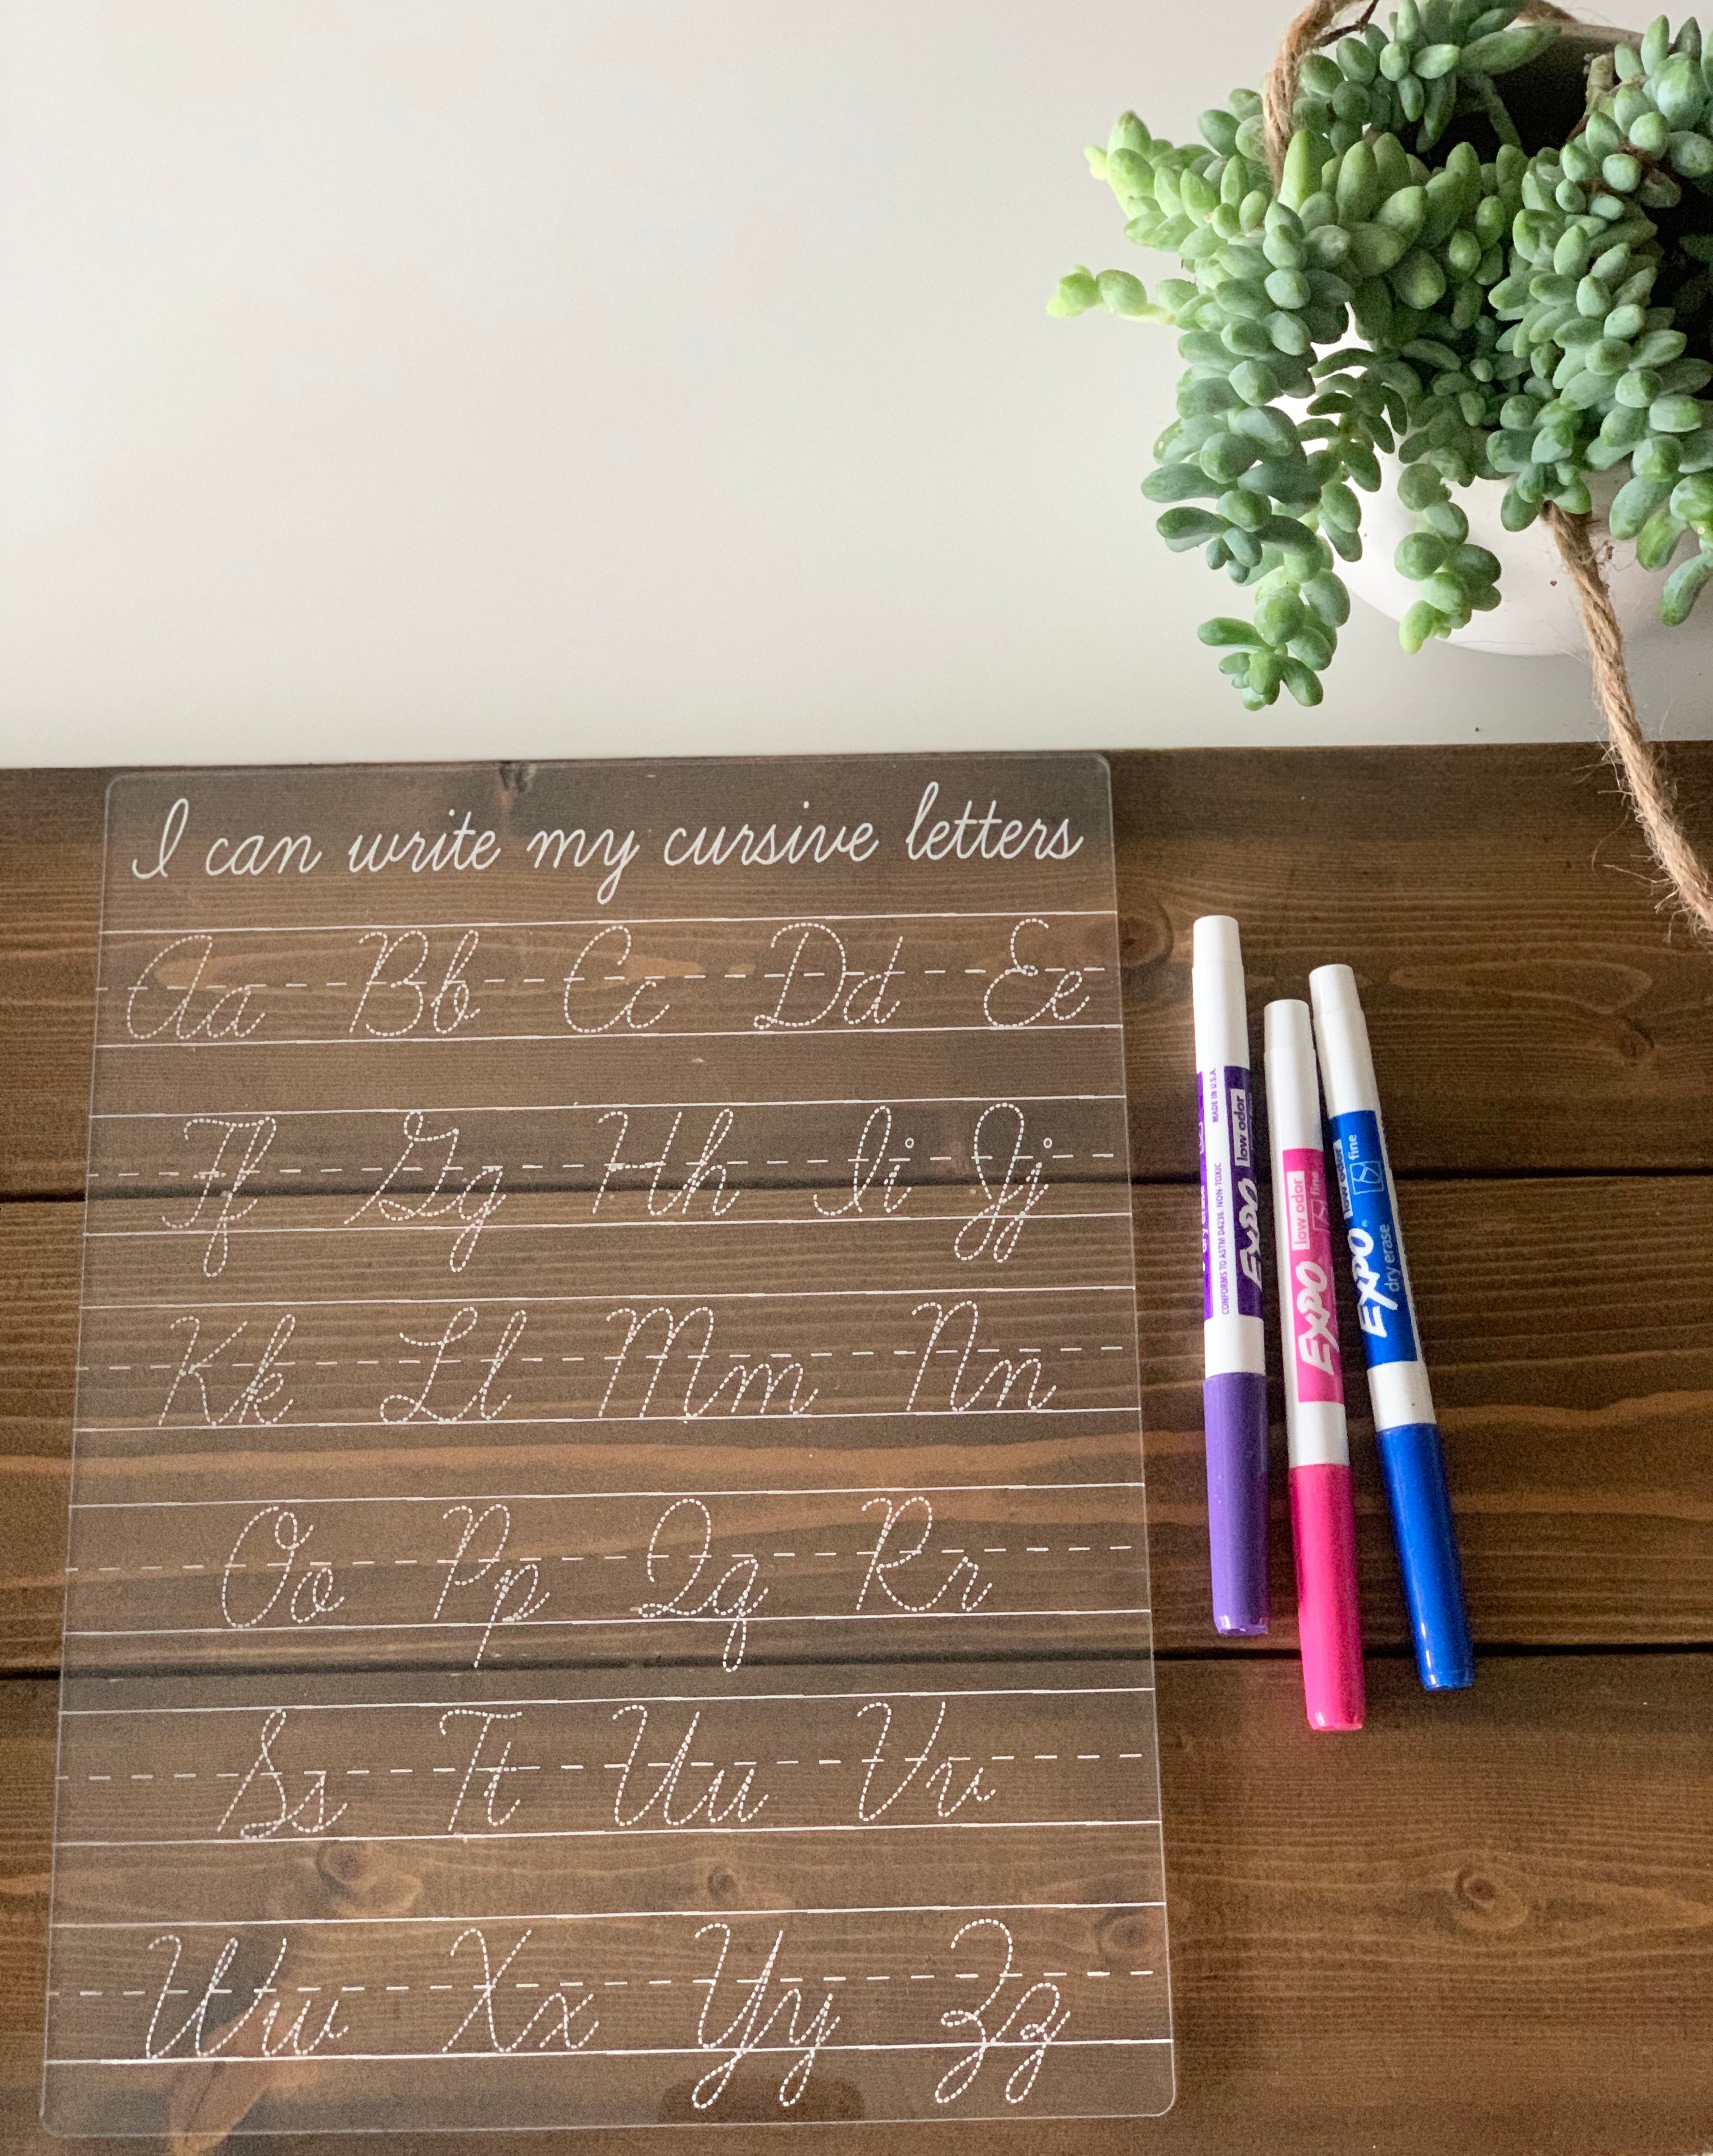 I can write my cursive letters
Aa Bb Cc Dd Ee
Ff Gg Hh Ii Jj
Kk Ll Mm Nn
Oo Pp Qq Rr
Ss Tt Uu Vv
Ww Xx Yy Zz
CONFORMS TO ASTM D4236 NON-TOXIC MADE IN U.S.A.
EXPO low odor
EXPO low odor fine
EXPO® low odor
dry erase fine